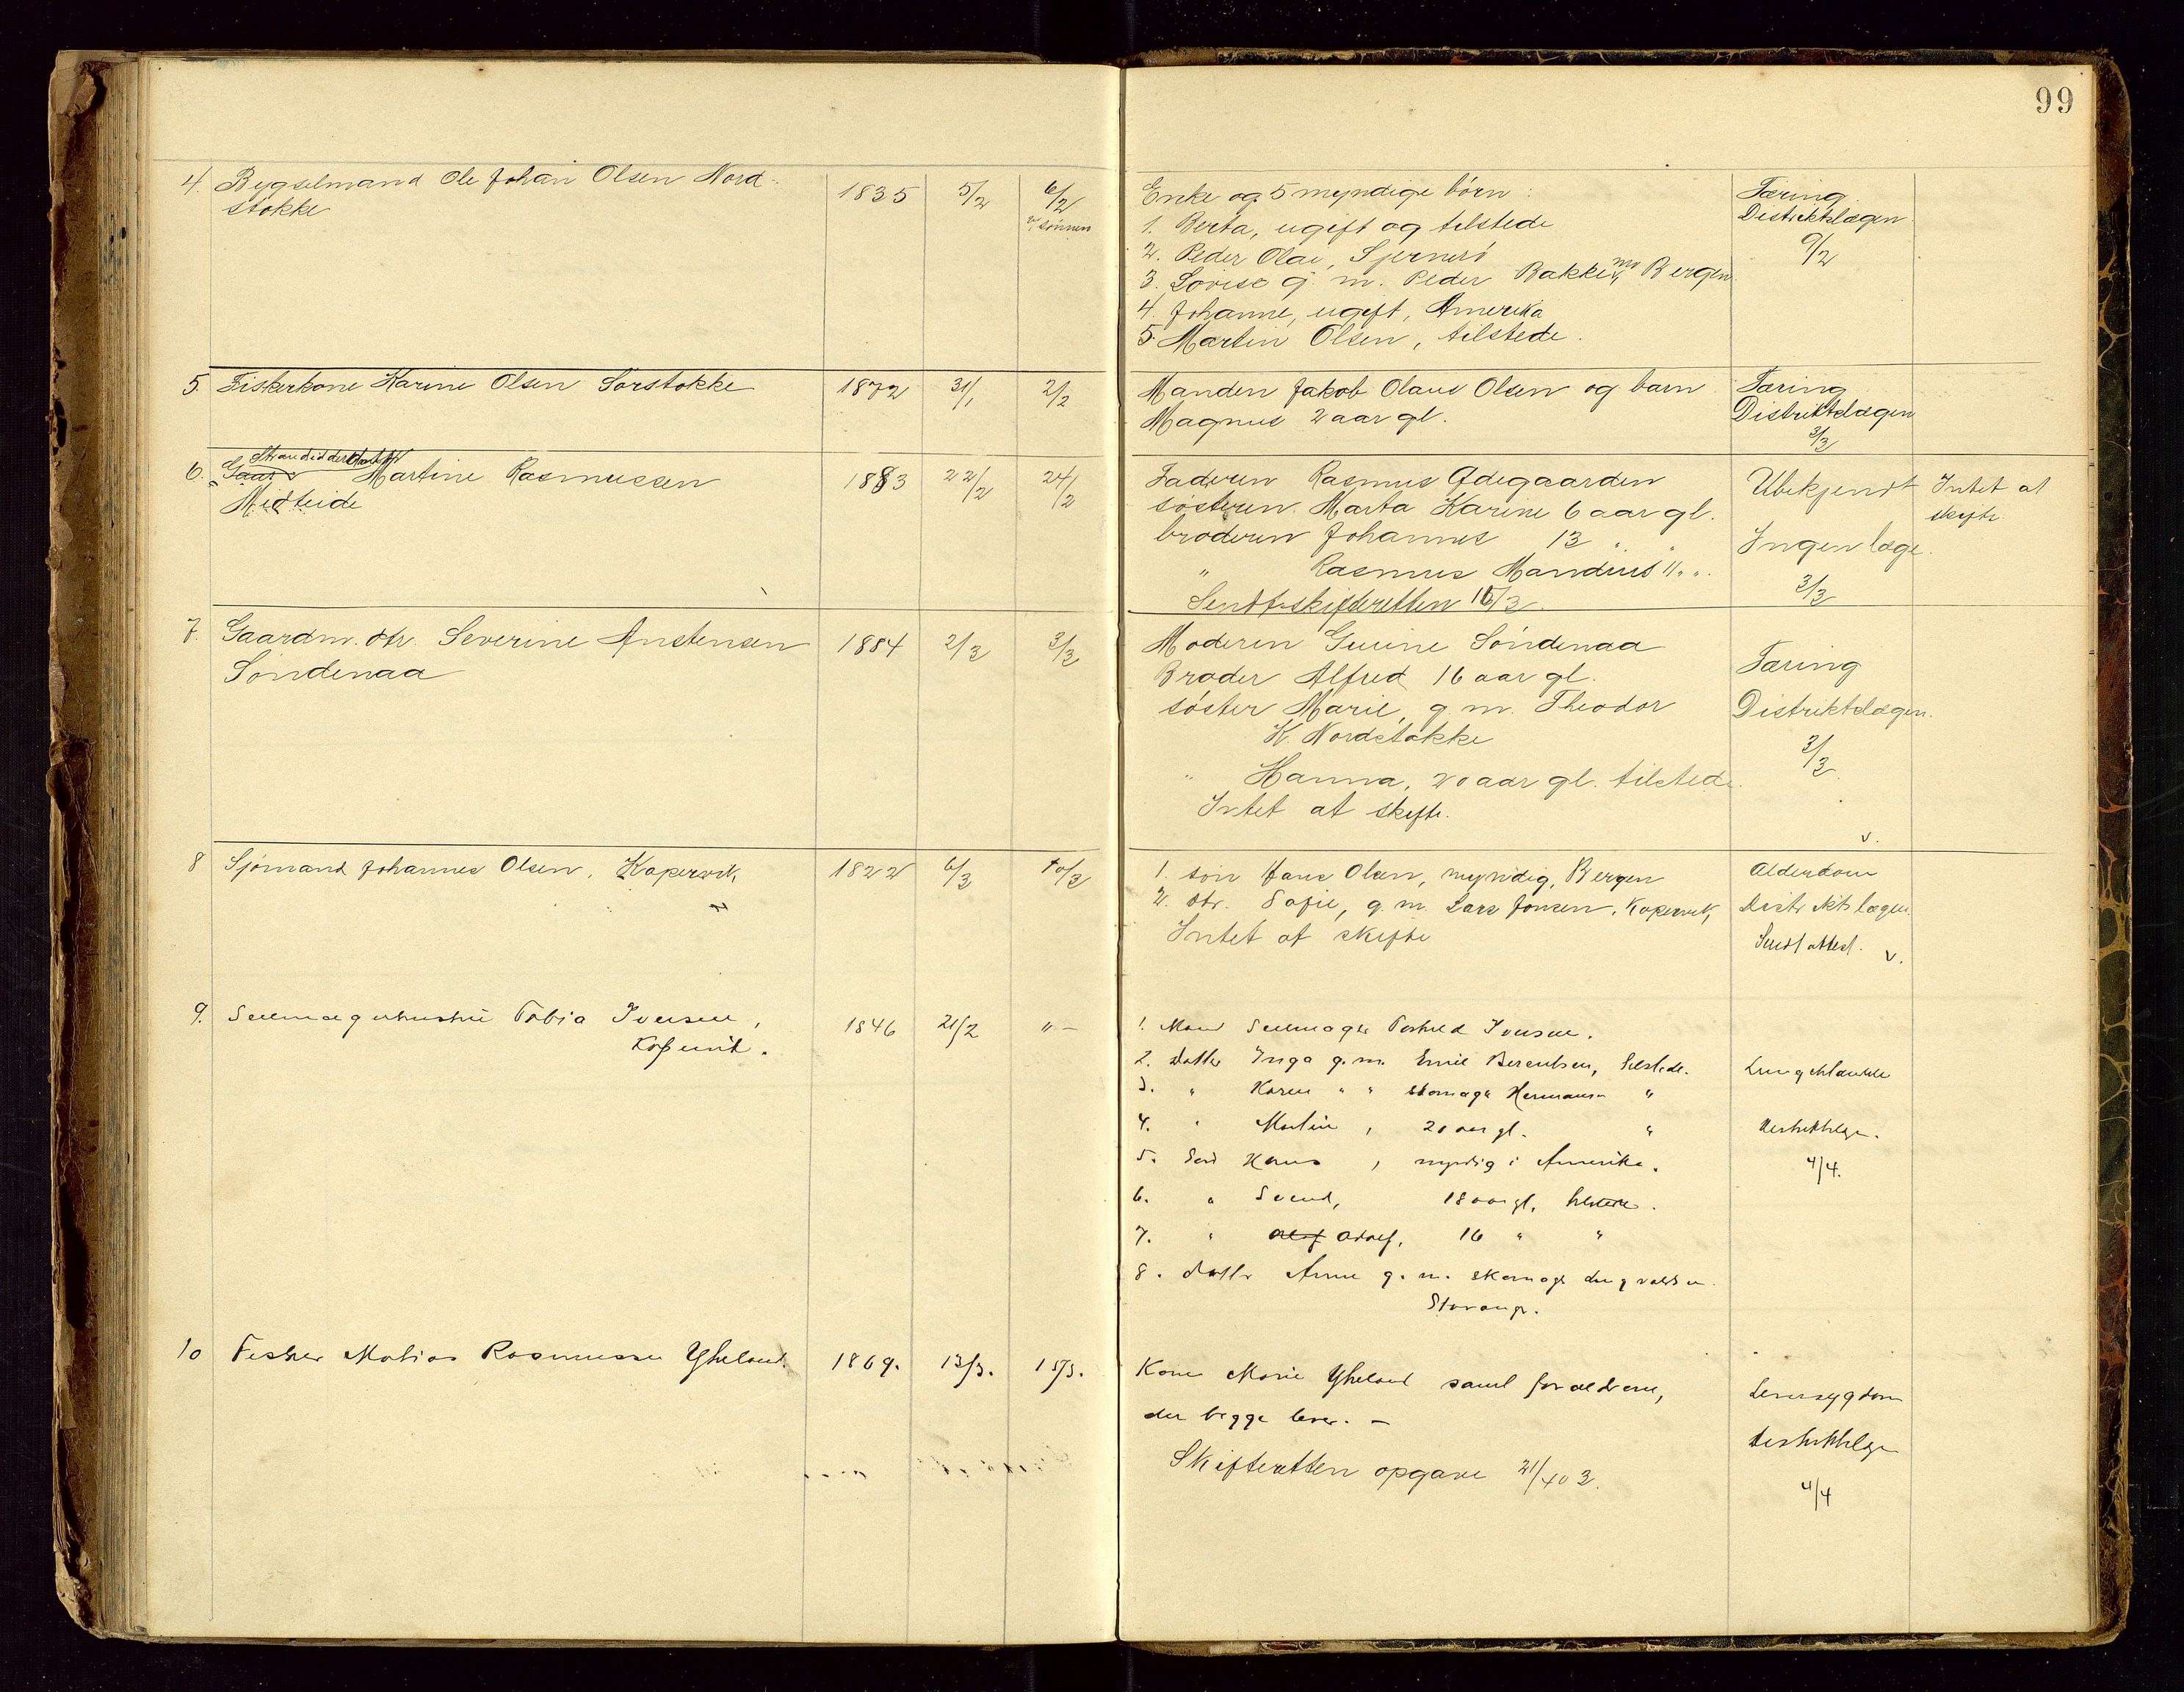 99
4. Bygselmand Ole Johan Olsen Nord-
stokke
1835 5/2 6/2
v/ sønnen
Enke og 5 myndige børn:
1. Berta, ugift og tilstede
2. Peder Olai, Sjernerö
3. Lovise g. m. Peder Bakke, Bergen
4. Johanne, ugift, Amerika
5. Martin Olsen, tilstede.
Tæring
Distriktslægen
9/2
5. Fiskerkone Karine Olsen Sørstokke 1872 31/1 2/2
Manden Jakob Olaus Olsen og barn
Magnus 2 aar gl.
Tæring
Distriktslægen
3/3
6. Gaard Martine Rasmussen 1883 22/2 24/2
Medteide
Faderen Rasmus Ødegaarden
søsteren Marta Karine 6 aar gl.
broderen Johannes 13 " "
" Rasmus Mandius 11 " "
Sendt skifteretten 16/3.
Ubekjendt
Ingen læge.
3/3
Intet at
skifte
7. Gaardm. dtr. Severine Anstensen 1884 2/3 3/3
Søndenaa
Moderen Gurine Søndenaa
Broder Alfred 16 aar gl.
søster Marie, g. m. Theodor
K Nordstokke
" Hanna, 20 aar gl. tilstede
Intet at skifte.
Tæring
Distriktslægen.
3/3
v.
8 Sjømand Johannes Olsen, Kopervik 1822 6/3 10/3
1. søn Hans Olsen, myndig, Bergen
2. dtr. Sofie, g. m. Lars Jonsen, Kopervik,
Intet at skifte
Alderdom
Distriktslægen
Sendt attest. v.
9. Seilmagerhustru Tobia Iversen,
Kopervik.
1846 21/2 "-
1. Mand Seilmager Torkild Iversen.
2. Datter Inga g. m. Emil Berentsen, tilstede.
3. " Karen " " skomager Hermansen "
4. " Martine, 20 aar gl. "
5. Søn Hans, myndig i Amerika.
6. " Svend, 18 aar gl, tilstede.
7. " Adolf, 16 " "
8. datter Anne g. m. skomager
Stavanger.
Distriktslæge.
4/4.
10 Fisker Matias Rasmussen Ytreland. 1869. 13/3. 15/3.
Kone Marie Ytreland samt forældrene,
der begge lever. -
Skifteretten opgave 21/4 03.
Leversygdom
Distriktslæge
4/4